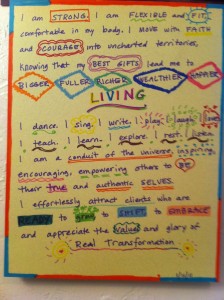 I am STRONG. I am FLEXIBLE and FIT,
comfortable in my body. I MOVE with FAITH
and COURAGE into uncharted territories,
Knowing that my BEST GIFTS lead me to
BIGGER, FULLER, RICHER, WEALTHIER, HAPPIER
LIVING
I dance. I sing. I write. I play. I laugh. I love.
I teach. I learn. I explore. I rest. I listen.
I am a conduit of the universe, inspiring,
encouraging, empowering others to BE
their true and authentic SELVES.
I effortlessly attract clients who are
READY to OPEN to SHIFT to EMBRACE
and appreciate the value and glory of
Real Transformation